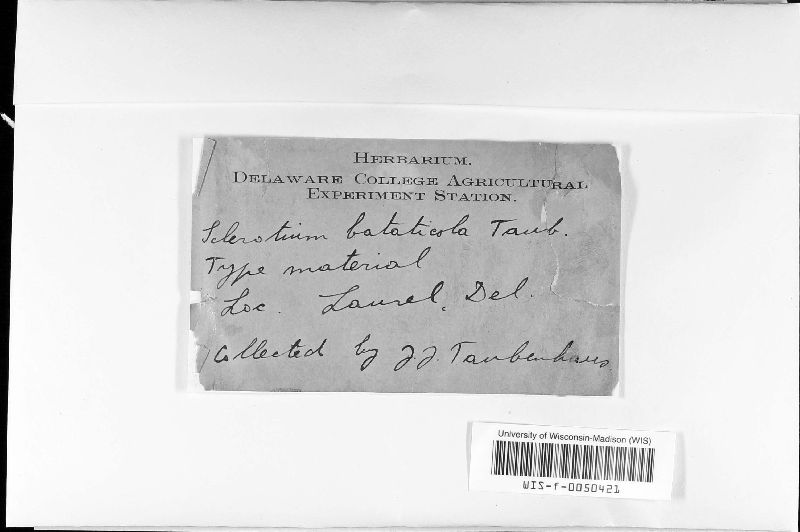 HERBARIUM.
DELAWARE COLLEGE AGRICULTURAL
EXPERIMENT STATION.
Sclerotium bataticola Taub.
Type material
Loc. Laurel, Del.
Collected by J.J. Taubenhaus
University of Wisconsin-Madison (WIS)
WIS-f-0050421